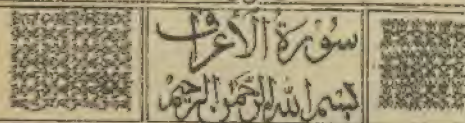 سُوْرَةُ الْاَعْرَافِ
بِسْمِ اللهِ الرَّحْمٰنِ الرَّحِيْمِ